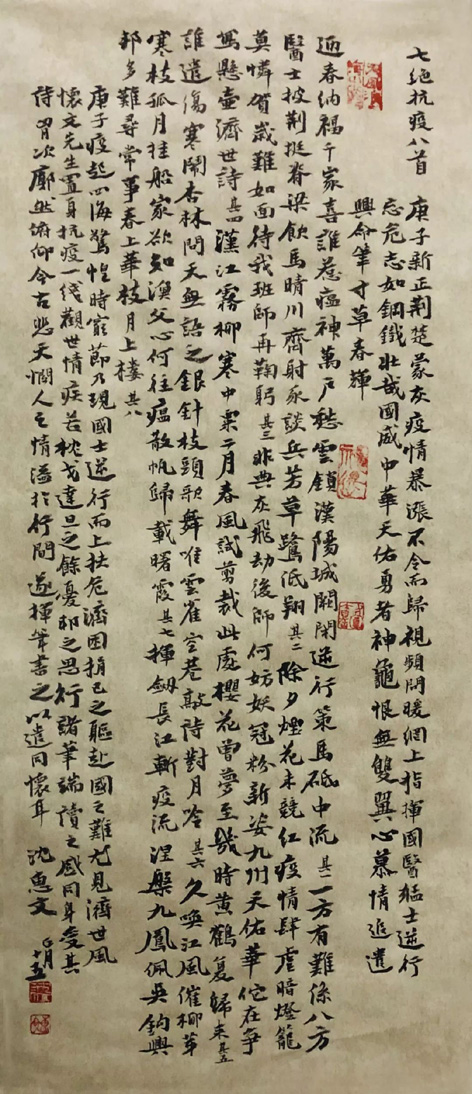 七绝抗疫八首
庚子新正荆楚蒙灰疫情暴涨不令而归视频问暖网上指挥国医猛士逆行
忘危志如钢铁壮哉国威中华天佑勇者神龟恨无双翼心慕情追遣
兴命笔寸草春晖
迎春纳福千家喜谁惹瘟神万户愁云锁汉阳城阙闭逆行策马砥中流其一一方有难系八方
医士披荆挺脊梁饮马晴川齐射豕谈兵芳草鹭低翔其二除夕烟花未竞红疫情肆虐暗灯笼
莫怜贺岁难如面待我班师再鞠躬其三非典灰飞劫后师何妨妖冠粉新姿九州天佑华佗在争
写悬壶济世诗其四汉江雾柳寒中栗二月春风试剪裁此处樱花曾梦至几时黄鹤复归来其五
谁遣伤寒闹杏林问天无语乏银针枝头歌舞唯云雀空巷敲诗对月吟其六久唤江风催柳芽
寒枝孤月挂船家欲知渔父心何往瘟散帆归载曙霞其七挥剑长江斩疫流涅槃九凤佩吴钩兴
邦多难寻常事春上华枝月上楼其八
庚子疫起四海惊惶时穷节乃现国士逆行而上扶危济困捐己之躯赴国之难尤见济世风
怀文先生置身抗疫一线观世情疾苦枕戈达旦之余忧邦之思行诸笔端读之感同身受其
诗胃次廓然俯仰今古悲天悯人之情溢于行间遂挥笔书之以遣同怀耳 沈惠文